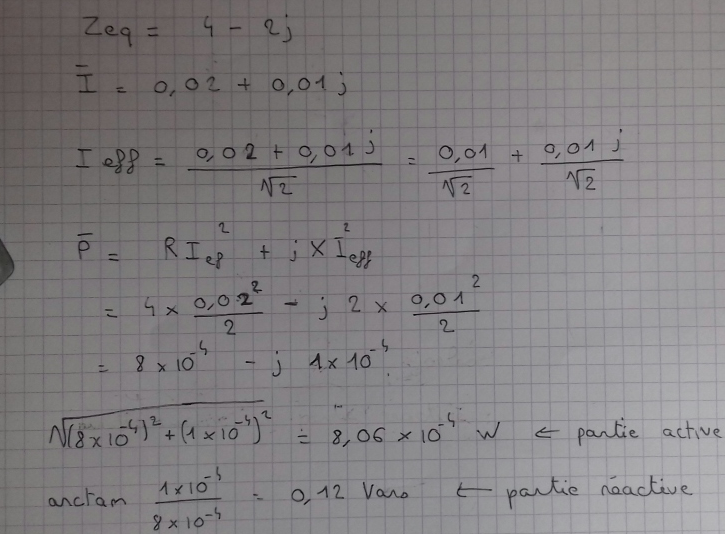 Zeq = 4 - 2j
Ī = 0,02 + 0,01 j
I eff = (0,02 + 0,01 j)/√2 = 0,01/√2 + 0,01 j/√2
P̄ = R I ef² + j X I eff²
= 4 × 0,02²/2 - j 2 × 0,01²/2
= 8 × 10⁻⁴ - j 1 × 10⁻⁴
√((8×10⁻⁴)² + (1×10⁻⁴)²) = 8,06 × 10⁻⁴ W ← partie active
arctan (1×10⁻⁴)/(8×10⁻⁴) = 0,12 Vars ← partie réactive